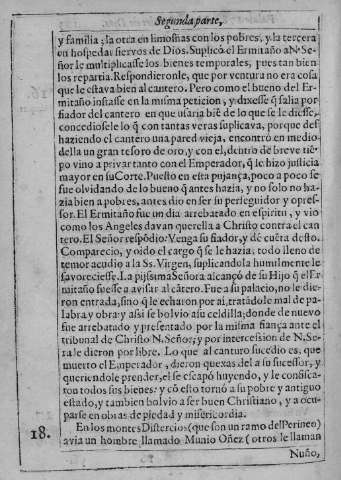 Segunda parte,
y familia; la otra en limosnas con los pobres, y la tercera
en hospedar siervos de Dios. Suplicò el Ermitaño a N. Se-
ñor le multiplicasse los bienes temporales, pues tan bien
los repartia. Respondieronle, que por ventura no era cosa
que le estava bien al cantero. Pero como el bueno del Er-
mitaño instasse en la misma peticion, y dixesse q̃ salia por
fiador del cantero en que usaria biẽ de lo que se le diesse,
concediosele lo q̃ con tantas veras suplicava, porque des
haziendo el cantero una pared vieja, encontrò en medio
della un gran tesoro de oro, y con el, dentro dẽ breve tiẽ-
po vino a privar tanto con el Emperador, q̃ le hizo justicia
mayor en su Corte. Puesto en esta pujança, poco a poco se
fue olvidando de lo bueno q̃ antes hazia, y no solo no ha-
zia bien a pobres, antes dio en ser su perseguidor y opres-
sor. El Ermitaño fue un dia arrebatado en espiritu, y vio
como los Angeles davan querella a Christo contra el can-
tero. El Señor respõdio: Venga su fiador, y dè cuẽta desto.
Comparecio, y oido el cargo q̃ se le hazia, todo lleno de
temor acudio a la Ss. Virgen, suplicandola humilmente le
favoreciesse. La pijssima Señora alcançò de su Hijo q̃ el Er-
mitaño fuesse a avisar al cãtero. Fue a su palacio, no le die-
ron entrada, sino q̃ le echaron por ai, tratãdole mal de pa-
labra y obra: y assi se bolvio a su celdilla; donde de nuevo
fue arrebatado y presentado por la misma fiança ante el
tribunal de Christo N. Señor; y por intercession de N. Se-
ra le dieron por libre. Lo que al canturo sucedio es, que
muerto el Emperador, dieron quexas del a su sucessor, y
queriendole prender, el se escapò huyendo, y le confisca-
ton todos sus bienes: y cõ esto tornò a su pobre y antiguo
estado, y tambien bolvio a ser buen Christiano, y a ocu-
parse en obras de piedad y misericordia.
18. En los montes Distercios (que son un ramo del Perineo)
avia un hombre llamado Munio Oñez (otros le llaman
Nuño,